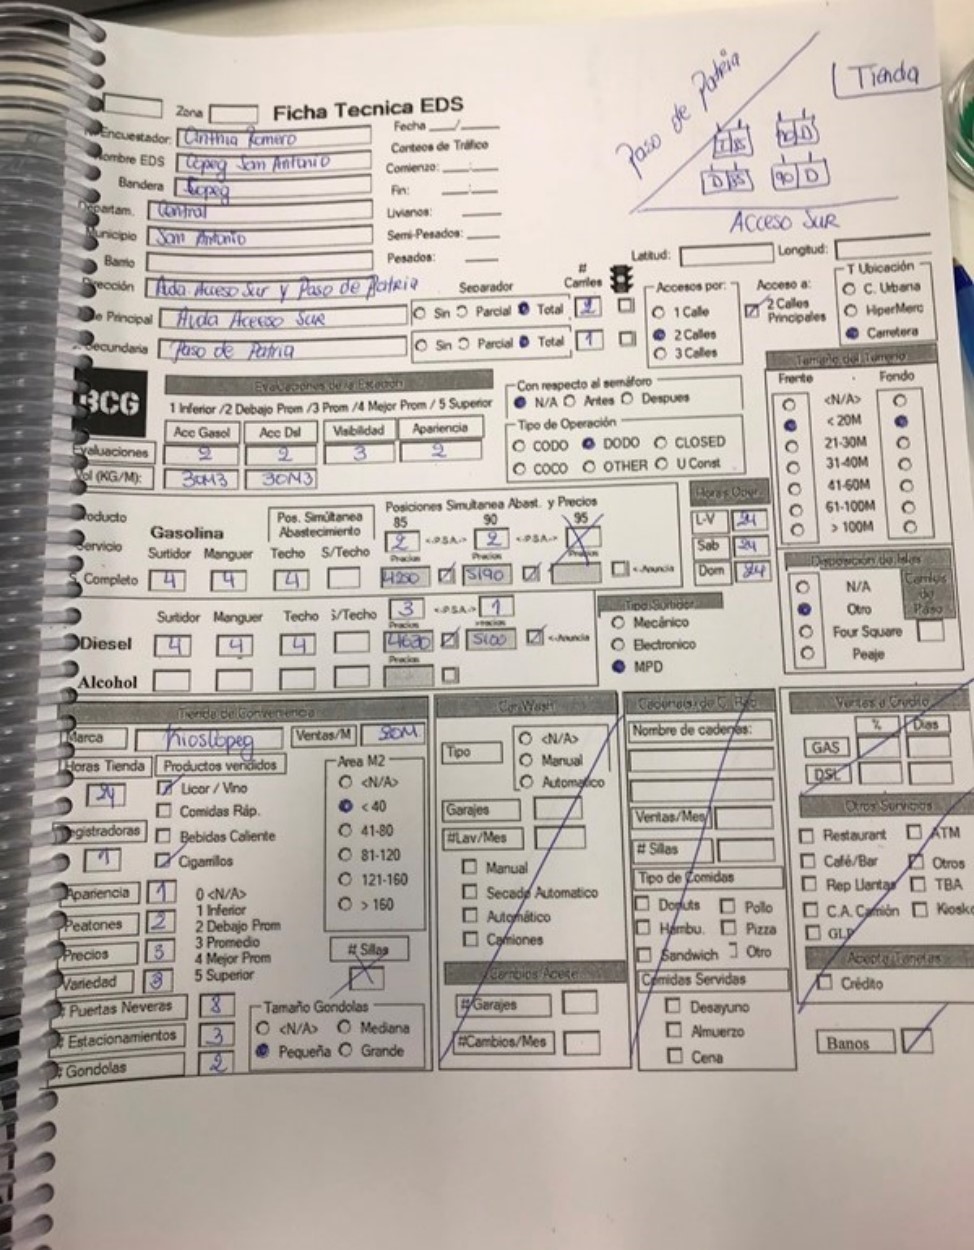 Paso de Patria
Tienda
D 85
90 D
ACCESO SUR
Zona
Ficha Tecnica EDS
Encuestador: Cinthia Romero
Fecha ___/___
Conteos de Tráfico
Nombre EDS Copeg San Antonio
Comienzo: ___:___
Bandera Copeg
Fin: ___:___
Departam. Central
Livianos: ___
Municipio San Antonio
Semi-Pesados: ___
Barrio
Pesados: ___
Latitud:
Longitud:
Dirección Avda. Acceso Sur y Paso de Patria
Separador
# Carriles
e Principal Avda Acceso Sur
Sin Parcial Total 2
Secundaria Paso de Patria
Sin Parcial Total 1
Accesos por:
1 Calle
2 Calles
3 Calles
Acceso a:
2 Calles Principales
T Ubicación
C. Urbana
HiperMerc
Carretera
BCG
Evaluaciones de la Estación
1 Inferior /2 Debajo Prom /3 Prom /4 Mejor Prom / 5 Superior
Acc Gasol Acc Dsl Visibilidad Apariencia
Evaluaciones 2 2 3 2
Vol (KG/M): 30M3 30M3
Con respecto al semáforo
N/A Antes Despues
Tipo de Operación
CODO DODO CLOSED
COCO OTHER U Const
Tamaño del Terreno
Frente Fondo
<N/A>
< 20M
21-30M
31-40M
41-60M
61-100M
> 100M
Producto
Gasolina
Pos. Simúltanea Abastecimiento
Posiciones Simultanea Abast. y Precios
85 90 95
Servicio
Surtidor Manguer Techo S/Techo
2 <-P.S.A.-> 2 <-P.S.A.->
Precios Precios Precios
S. Completo 4 4 4 4250 5190 <-Anuncia
Horas Oper.
L-V 24
Sab 24
Dom 24
Surtidor Manguer Techo S/Techo
3 <-P.S.A.-> 1
Precios Precios
Diesel 4 4 4 4620 5100 <-Anuncia
Precios
Alcohol
Tipo Surtidor
Mecánico
Electronico
MPD
Disposición de Islas
N/A
Otro
Four Square
Peaje
Carriles de Paso
Tienda de Conveniencia
Marca Kioscopeg Ventas/M 50M
Horas Tienda
24
Productos vendidos
Licor / Vino
Comidas Ráp.
Bebidas Caliente
Cigarrillos
Registradoras
1
Area M2
<N/A>
< 40
41-80
81-120
121-160
> 160
Apariencia 1
Peatones 2
Precios 3
Variedad 3
0 <N/A>
1 Inferior
2 Debajo Prom
3 Promedio
4 Mejor Prom
5 Superior
# Sillas
# Puertas Neveras 8
# Estacionamientos 3
# Gondolas 2
Tamaño Gondolas
<N/A> Mediana
Pequeña Grande
Car Wash
Tipo
<N/A>
Manual
Automatico
Garajes
#Lav/Mes
Manual
Secado Automatico
Automático
Camiones
Cambios Aceite
# Garajes
#Cambios/Mes
Cadenas de C. Ráp.
Nombre de cadenas:
Ventas/Mes
# Sillas
Tipo de Comidas
Donuts Pollo
Hambu. Pizza
Sandwich Otro
Comidas Servidas
Desayuno
Almuerzo
Cena
Ventas a Crédito
% Dias
GAS
DSL
Otros Servicios
Restaurant ATM
Café/Bar Otros
Rep Llantas TBA
C.A. Camión Kiosko
GLP
Acepta Tarjetas
Crédito
Banos